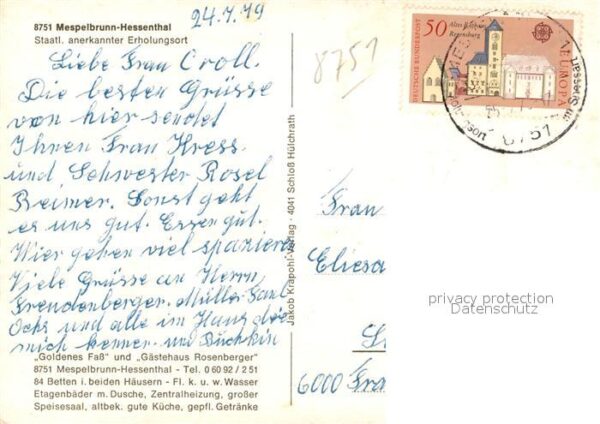 8751 Mespelbrunn-Hessenthal
Staatl. anerkannter Erholungsort
24.7.79
Liebe Frau Croll.
Die besten Grüsse
von hier sendet
Ihnen Frau Kress
und Schwester Rosel
Reimer. Sonst geht
es uns gut. Essen gut.
Wir gehen viel spazieren
Viele Grüsse an Herrn
Frendenberger. Müller
Ochs und alle im Haus die
mich kennen
„Goldenes Faß" und „Gästehaus Rosenberger"
8751 Mespelbrunn-Hessenthal - Tel. 0 60 92 / 2 51
84 Betten i. beiden Häusern - Fl. k. u. w. Wasser
Etagenbäder m. Dusche, Zentralheizung, großer
Speisesaal, altbek. gute Küche, gepfl. Getränke
Jakob Krapohl-Verlag · 4041 Schloß Hülchrath
8751
50
Altes Rathaus
Regensburg
DEUTSCHE BUNDESPOST
EUROPA
8751
Frau
Eliesa
6000 Fra
privacy protection
Datenschutz